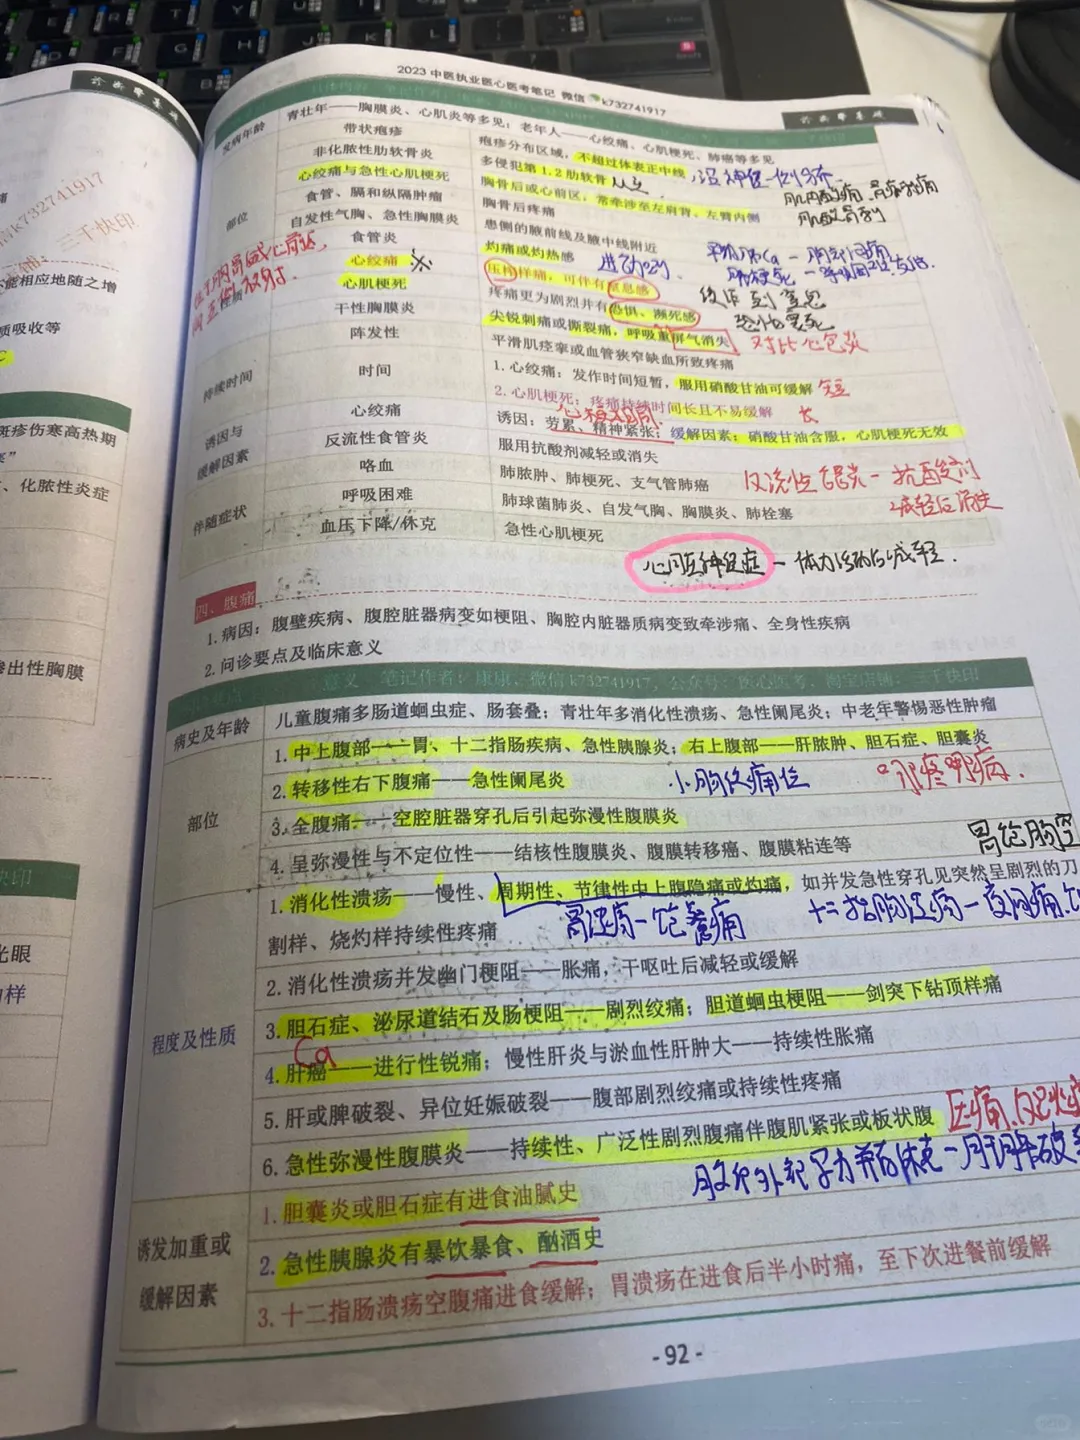 2023 中医执业医心医考笔记 微信 k732741917
诊断学基础
诊断学基础
发病年龄 青壮年——胸膜炎、心肌炎等多见；老年人——心绞痛、心肌梗死、肺癌等多见
部位
带状疱疹 疱疹分布区域，不超过体表正中线
非化脓性肋软骨炎 多侵犯第 1.2 肋软骨
心绞痛与急性心肌梗死 胸骨后或心前区，常牵涉至左肩背、左臂内侧
食管、膈和纵隔肿瘤 胸骨后疼痛
自发性气胸、急性胸膜炎 患侧的腋前线及腋中线附近
性质
食管炎 灼痛或灼热感
心绞痛 压榨样痛，可伴有窒息感
心肌梗死 疼痛更为剧烈并有恐惧、濒死感
干性胸膜炎 尖锐刺痛或撕裂痛，呼吸重屏气消失
对比心包炎
持续时间
阵发性 平滑肌痉挛或血管狭窄缺血所致疼痛
时间 1.心绞痛：发作时间短暂，服用硝酸甘油可缓解 短
2.心肌梗死：疼痛持续时间长且不易缓解 长
诱因与缓解因素
心绞痛 诱因：劳累、精神紧张；缓解因素：硝酸甘油含服，心肌梗死无效
反流性食管炎 服用抗酸剂减轻或消失
反流性食管炎—抗酸剂
减轻后消失
伴随症状
咯血 肺脓肿、肺梗死、支气管肺癌
呼吸困难 肺球菌肺炎、自发气胸、胸膜炎、肺栓塞
血压下降/休克 急性心肌梗死
心脏神经症—体力活动后减轻.
四、腹痛
1.病因：腹壁疾病、腹腔脏器病变如梗阻、胸腔内脏器质病变致牵涉痛、全身性疾病
2.问诊要点及临床意义
意义 笔记作者：康康，微信 k732741917，公众号：医心医考，淘宝店铺：三千快印
病史及年龄 儿童腹痛多肠道蛔虫症、肠套叠；青壮年多消化性溃疡、急性阑尾炎；中老年警惕恶性肿瘤
部位
1.中上腹部——胃、十二指肠疾病、急性胰腺炎；右上腹部——肝脓肿、胆石症、胆囊炎
2.转移性右下腹痛——急性阑尾炎
3.全腹痛——空腔脏器穿孔后引起弥漫性腹膜炎
4.呈弥漫性与不定位性——结核性腹膜炎、腹膜转移癌、腹膜粘连等
程度及性质
1.消化性溃疡——慢性、周期性、节律性中上腹隐痛或灼痛，如并发急性穿孔见突然呈剧烈的刀
割样、烧灼样持续性疼痛
2.消化性溃疡并发幽门梗阻——胀痛，干呕吐后减轻或缓解
3.胆石症、泌尿道结石及肠梗阻——剧烈绞痛；胆道蛔虫梗阻——剑突下钻顶样痛
Ca
4.肝癌——进行性锐痛；慢性肝炎与淤血性肝肿大——持续性胀痛
5.肝或脾破裂、异位妊娠破裂——腹部剧烈绞痛或持续性疼痛
6.急性弥漫性腹膜炎——持续性、广泛性剧烈腹痛伴腹肌紧张或板状腹
诱发加重或缓解因素
1.胆囊炎或胆石症有进食油腻史
2.急性胰腺炎有暴饮暴食、酗酒史
3.十二指肠溃疡空腹痛进食缓解；胃溃疡在进食后半小时痛，至下次进餐前缓解
-92-
k732741917
三千快印
能相应地随之增
质吸收等
斑疹伤寒高热期
、化脓性炎症
渗出性胸膜
快印
光眼